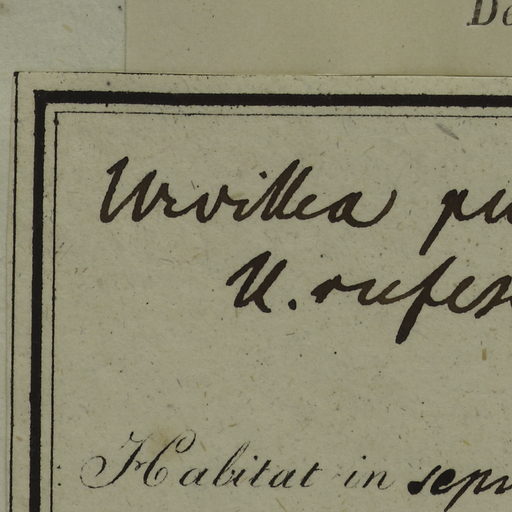 De
Urvillea pu
U. rufes
Habitat in sepi